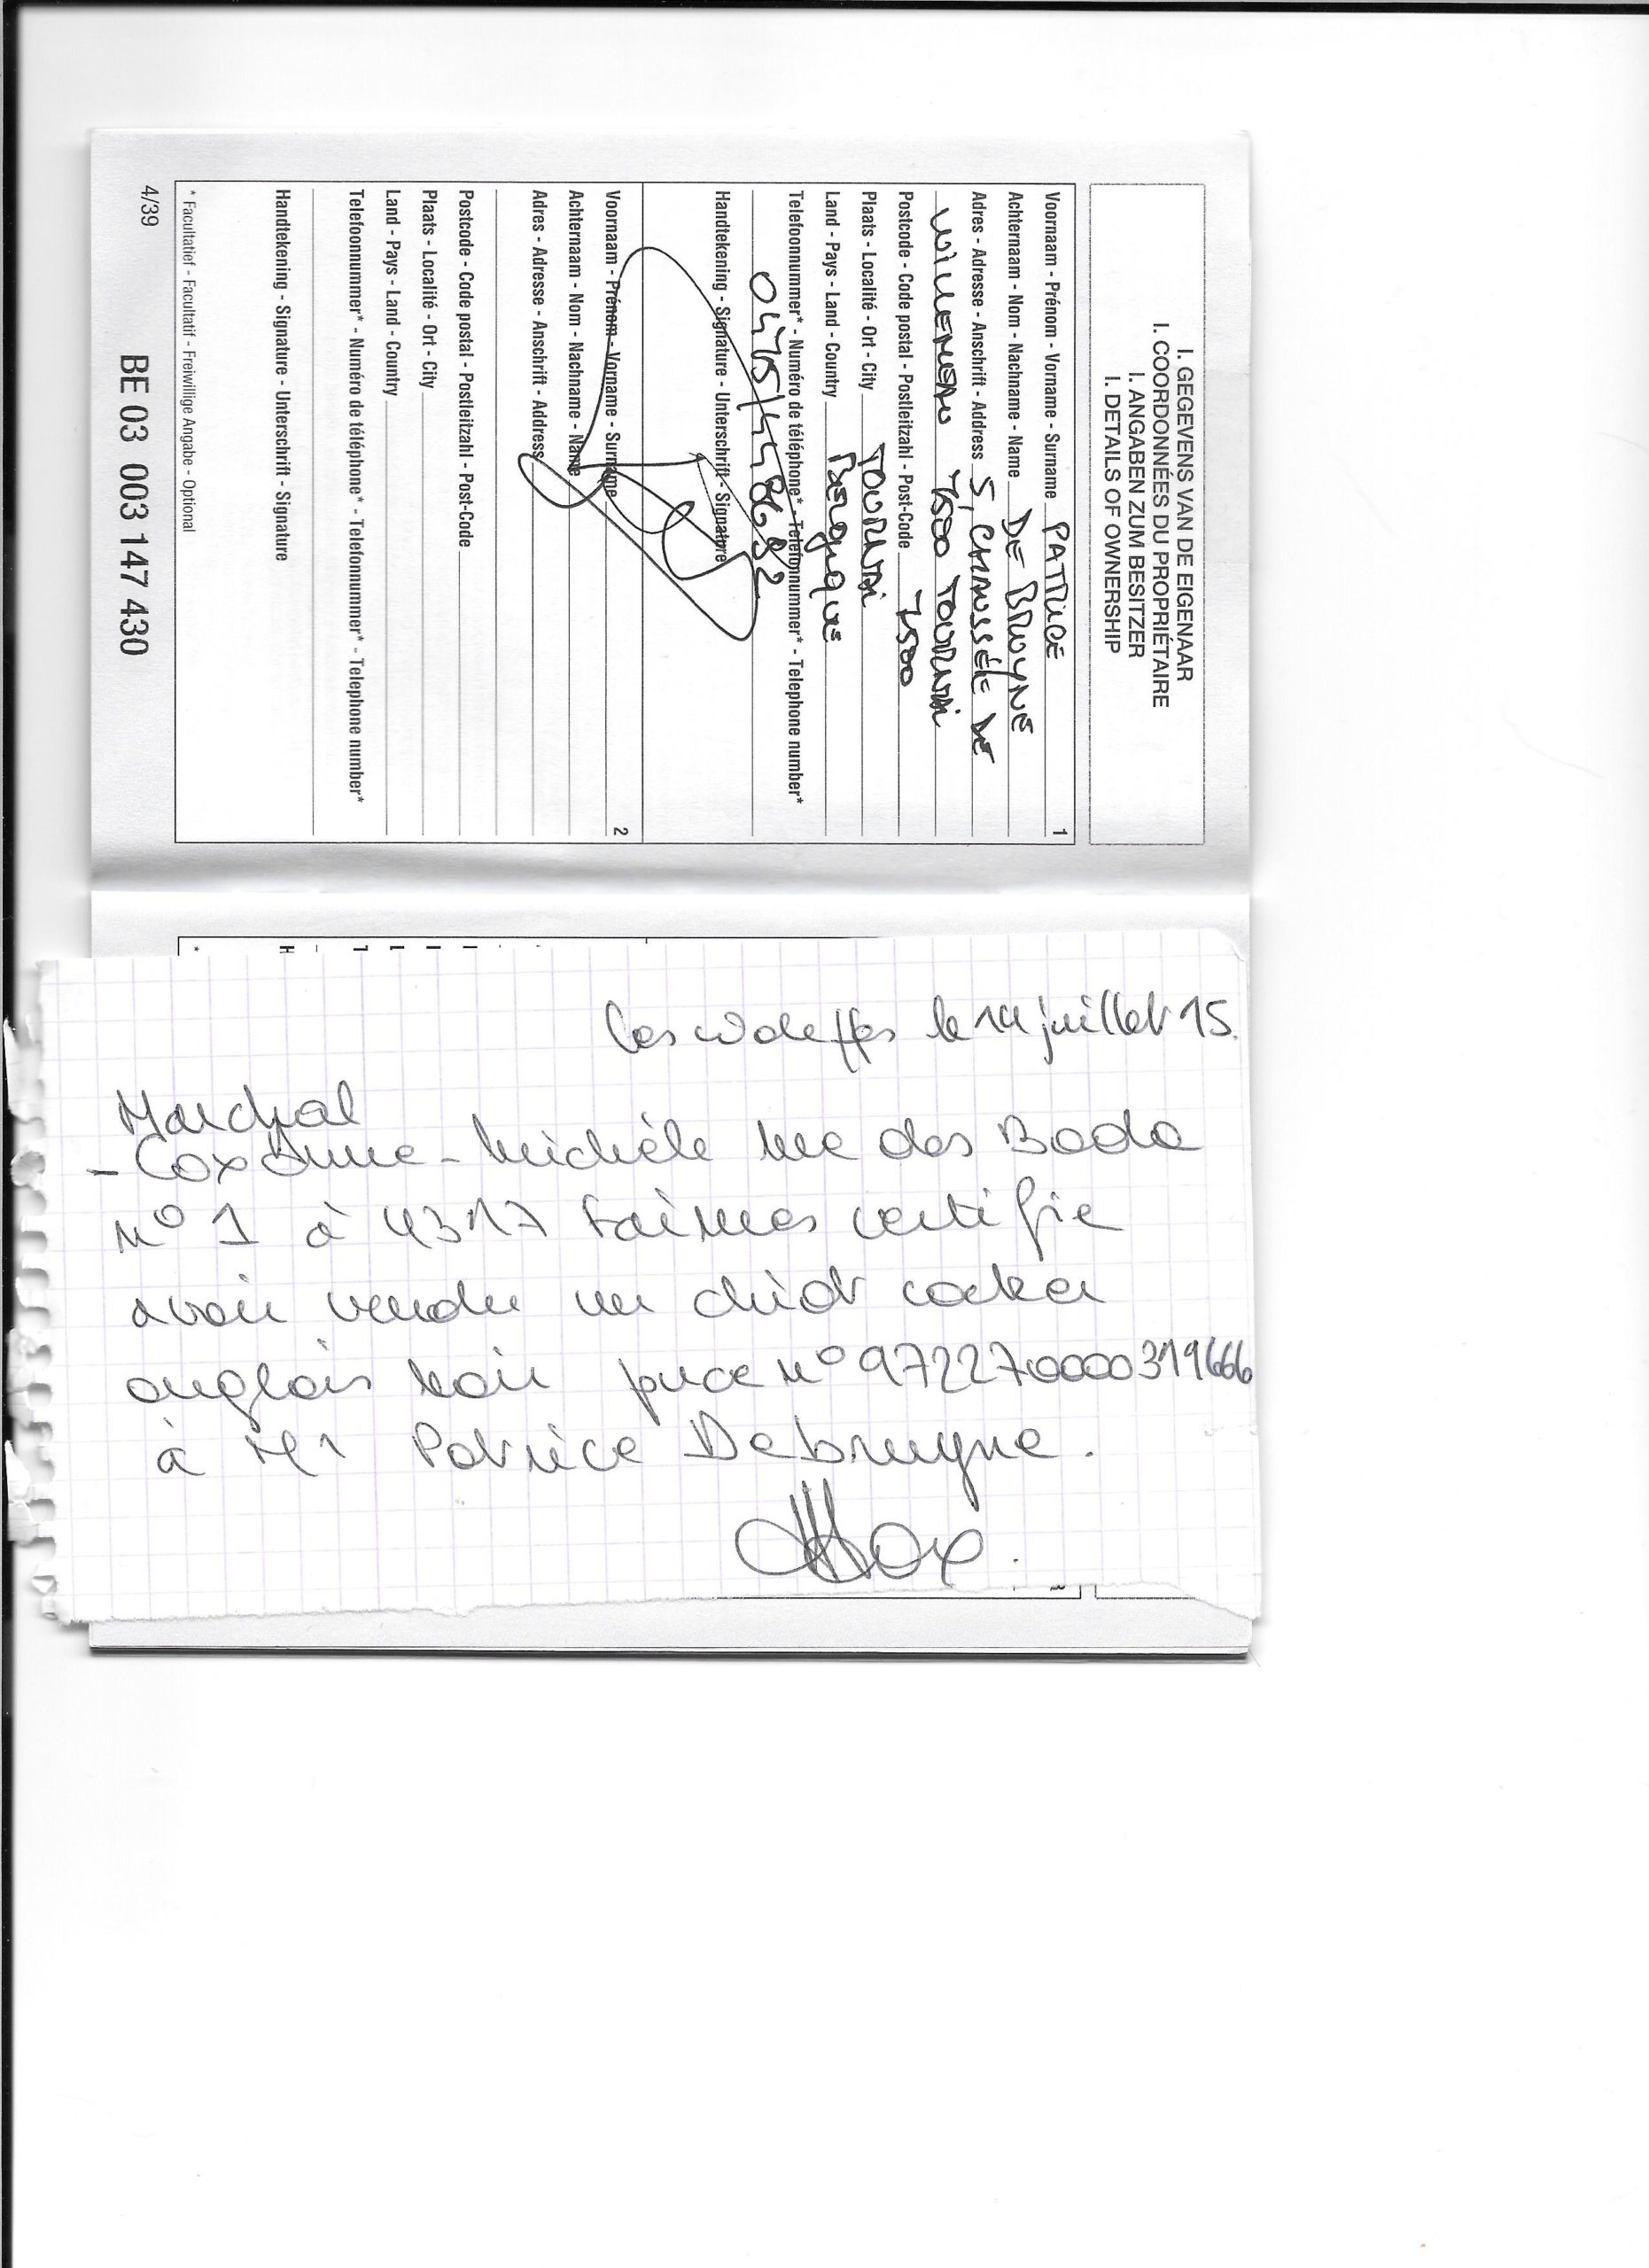 I. GEGEVENS VAN DE EIGENAAR
I. COORDONNÉES DU PROPRIÉTAIRE
I. ANGABEN ZUM BESITZER
I. DETAILS OF OWNERSHIP
1
Voornaam - Prénom - Vorname - Surname PATRICE
Achternaam - Nom - Nachname - Name DE BRUYNE
Adres - Adresse - Anschrift - Address 5, CHAUSSÉE DE
WILLEMEAU 7500 TOURNAI
Postcode - Code postal - Postleitzahl - Post-Code 7500
Plaats - Localité - Ort - City TOURNAI
Land - Pays - Land - Country Belgique
Telefoonnummer* - Numéro de téléphone* - Telefonnummer* - Telephone number*
Handtekening - Signature - Unterschrift - Signature
2
Voornaam - Prénom - Vorname - Surname
Achternaam - Nom - Nachname - Name
Adres - Adresse - Anschrift - Address
Postcode - Code postal - Postleitzahl - Post-Code
Plaats - Localité - Ort - City
Land - Pays - Land - Country
Telefoonnummer* - Numéro de téléphone* - Telefonnummer* - Telephone number*
Handtekening - Signature - Unterschrift - Signature
* Facultatief - Facultatif - Freiwillige Angabe - Optional
4/39
BE 03 003 147 430
Les Waleffes le 14 juillet 15.
Maréchal
- Cox Anne - Michèle rue des
N° 1 à 4317 Faimes certifie
avoir vendu un chiot cocker
anglais noir puce N° 972270000319666
à Mr Patrice Debruyne.